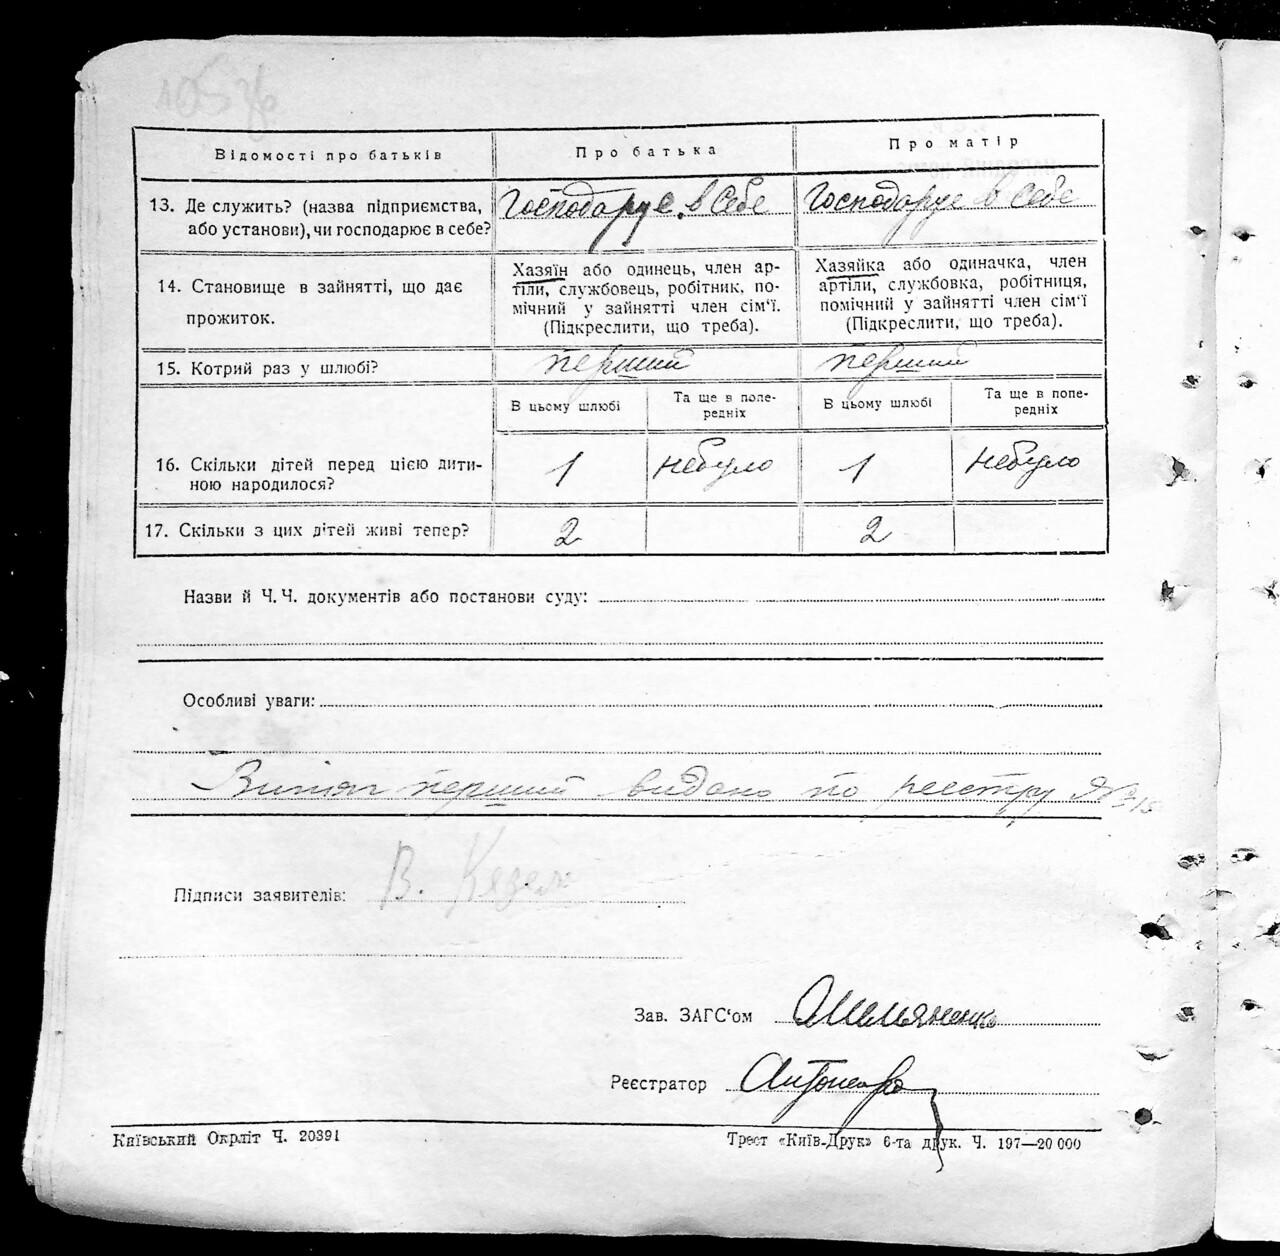 Відомості про батьків
Про батька
Про матір
13. Де служить? (назва підприємства, або установи), чи господарює в себе?
Господарує в себе
Господарує в себе
14. Становище в зайнятті, що дає прожиток.
Хазяїн або одинець, член ар-
тіли, службовець, робітник, по-
мічний у зайнятті член сім'ї.
(Підкреслити, що треба).
Хазяйка або одиначка, член
артіли, службовка, робітниця,
помічний у зайнятті член сім'ї
(Підкреслити, що треба).
15. Котрий раз у шлюбі?
перший
перший
В цьому шлюбі
Та ще в попе-
редніх
В цьому шлюбі
Та ще в попе-
редніх
16. Скільки дітей перед цією дити-
ною народилося?
1
небуло
1
небуло
17. Скільки з цих дітей живі тепер?
2
2
Назви й Ч. Ч. документів або постанови суду:
Особливі уваги:
Витяг перший видано по реєстру №
Підписи заявителів: В.
Зав. ЗАГС'ом
Реєстратор
Київський Окрліт Ч. 20391
Трест «Київ-Друк» 6-та друк. Ч. 197—20 000